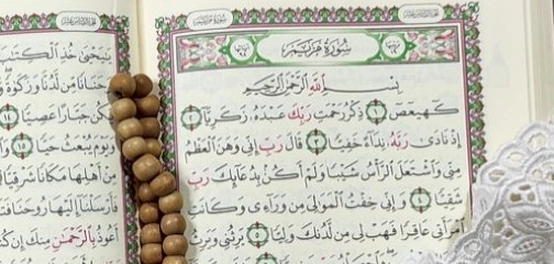 سُورَةُ مَرْيَمَ
سُورَةُ مَرْيَمَ
بِسْمِ ٱللَّهِ ٱلرَّحْمَٰنِ ٱلرَّحِيمِ
كٓهيعٓصٓ ١ ذِكْرُ رَحْمَتِ رَبِّكَ عَبْدَهُۥ زَكَرِيَّآ ٢
إِذْ نَادَىٰ رَبَّهُۥ نِدَآءً خَفِيًّا ٣ قَالَ رَبِّ إِنِّي وَهَنَ ٱلْعَظْمُ
مِنِّي وَٱشْتَعَلَ ٱلرَّأْسُ شَيْبًا وَلَمْ أَكُنۢ بِدُعَآئِكَ رَبِّ
شَقِيًّا ٤ وَإِنِّي خِفْتُ ٱلْمَوَٰلِيَ مِن وَرَآءِي وَكَانَتِ
ٱمْرَأَتِي عَاقِرًا فَهَبْ لِي مِن لَّدُنكَ وَلِيًّا ٥ يَرِثُنِي وَيَرِثُ
يَٰيَحْيَىٰ خُذِ ٱلْكِتَٰبَ
وَحَنَانًا مِّن لَّدُنَّا وَزَكَوٰةً
يَكُن جَبَّارًا عَصِيًّا ١٤
وَيَوْمَ يُبْعَثُ حَيًّا ١٥
مِنْ أَهْلِهَا مَكَانًا شَرْقِيًّا
فَأَرْسَلْنَآ إِلَيْهَا رُوحَنَا
أَعُوذُ بِٱلرَّحْمَٰنِ مِنكَ إِن